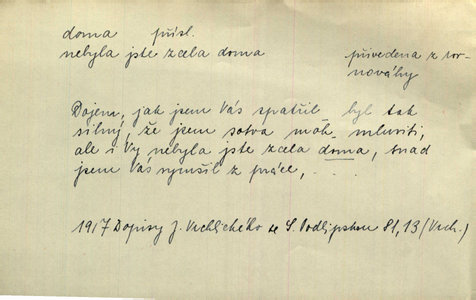 doma přísl.
nebyla jste zcela doma
přivedena z rov-
nováhy
Dojem, jak jsem Vás spatřil byl tak
silný, že jsem sotva moh. mluviti,
ale i Vy nebyla jste zcela doma, snad
jsem Vás vyrušil z práce, . . .
1917 Dopisy J. Vrchlického se S. Podlipskou 81, 13 (Vrch.)